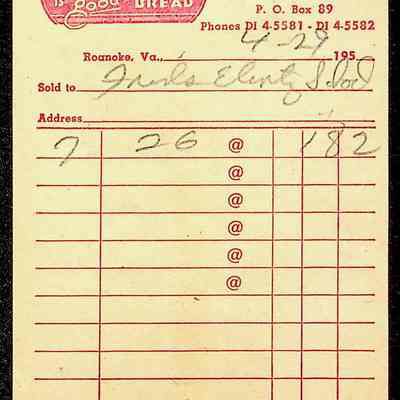 is Good BREAD
P. O. Box 89
Phones DI 4-5581 - DI 4-5582
Roanoke, Va., 4-29 195
Sold to
Address
7 26 @ 1 82
@
@
@
@
@